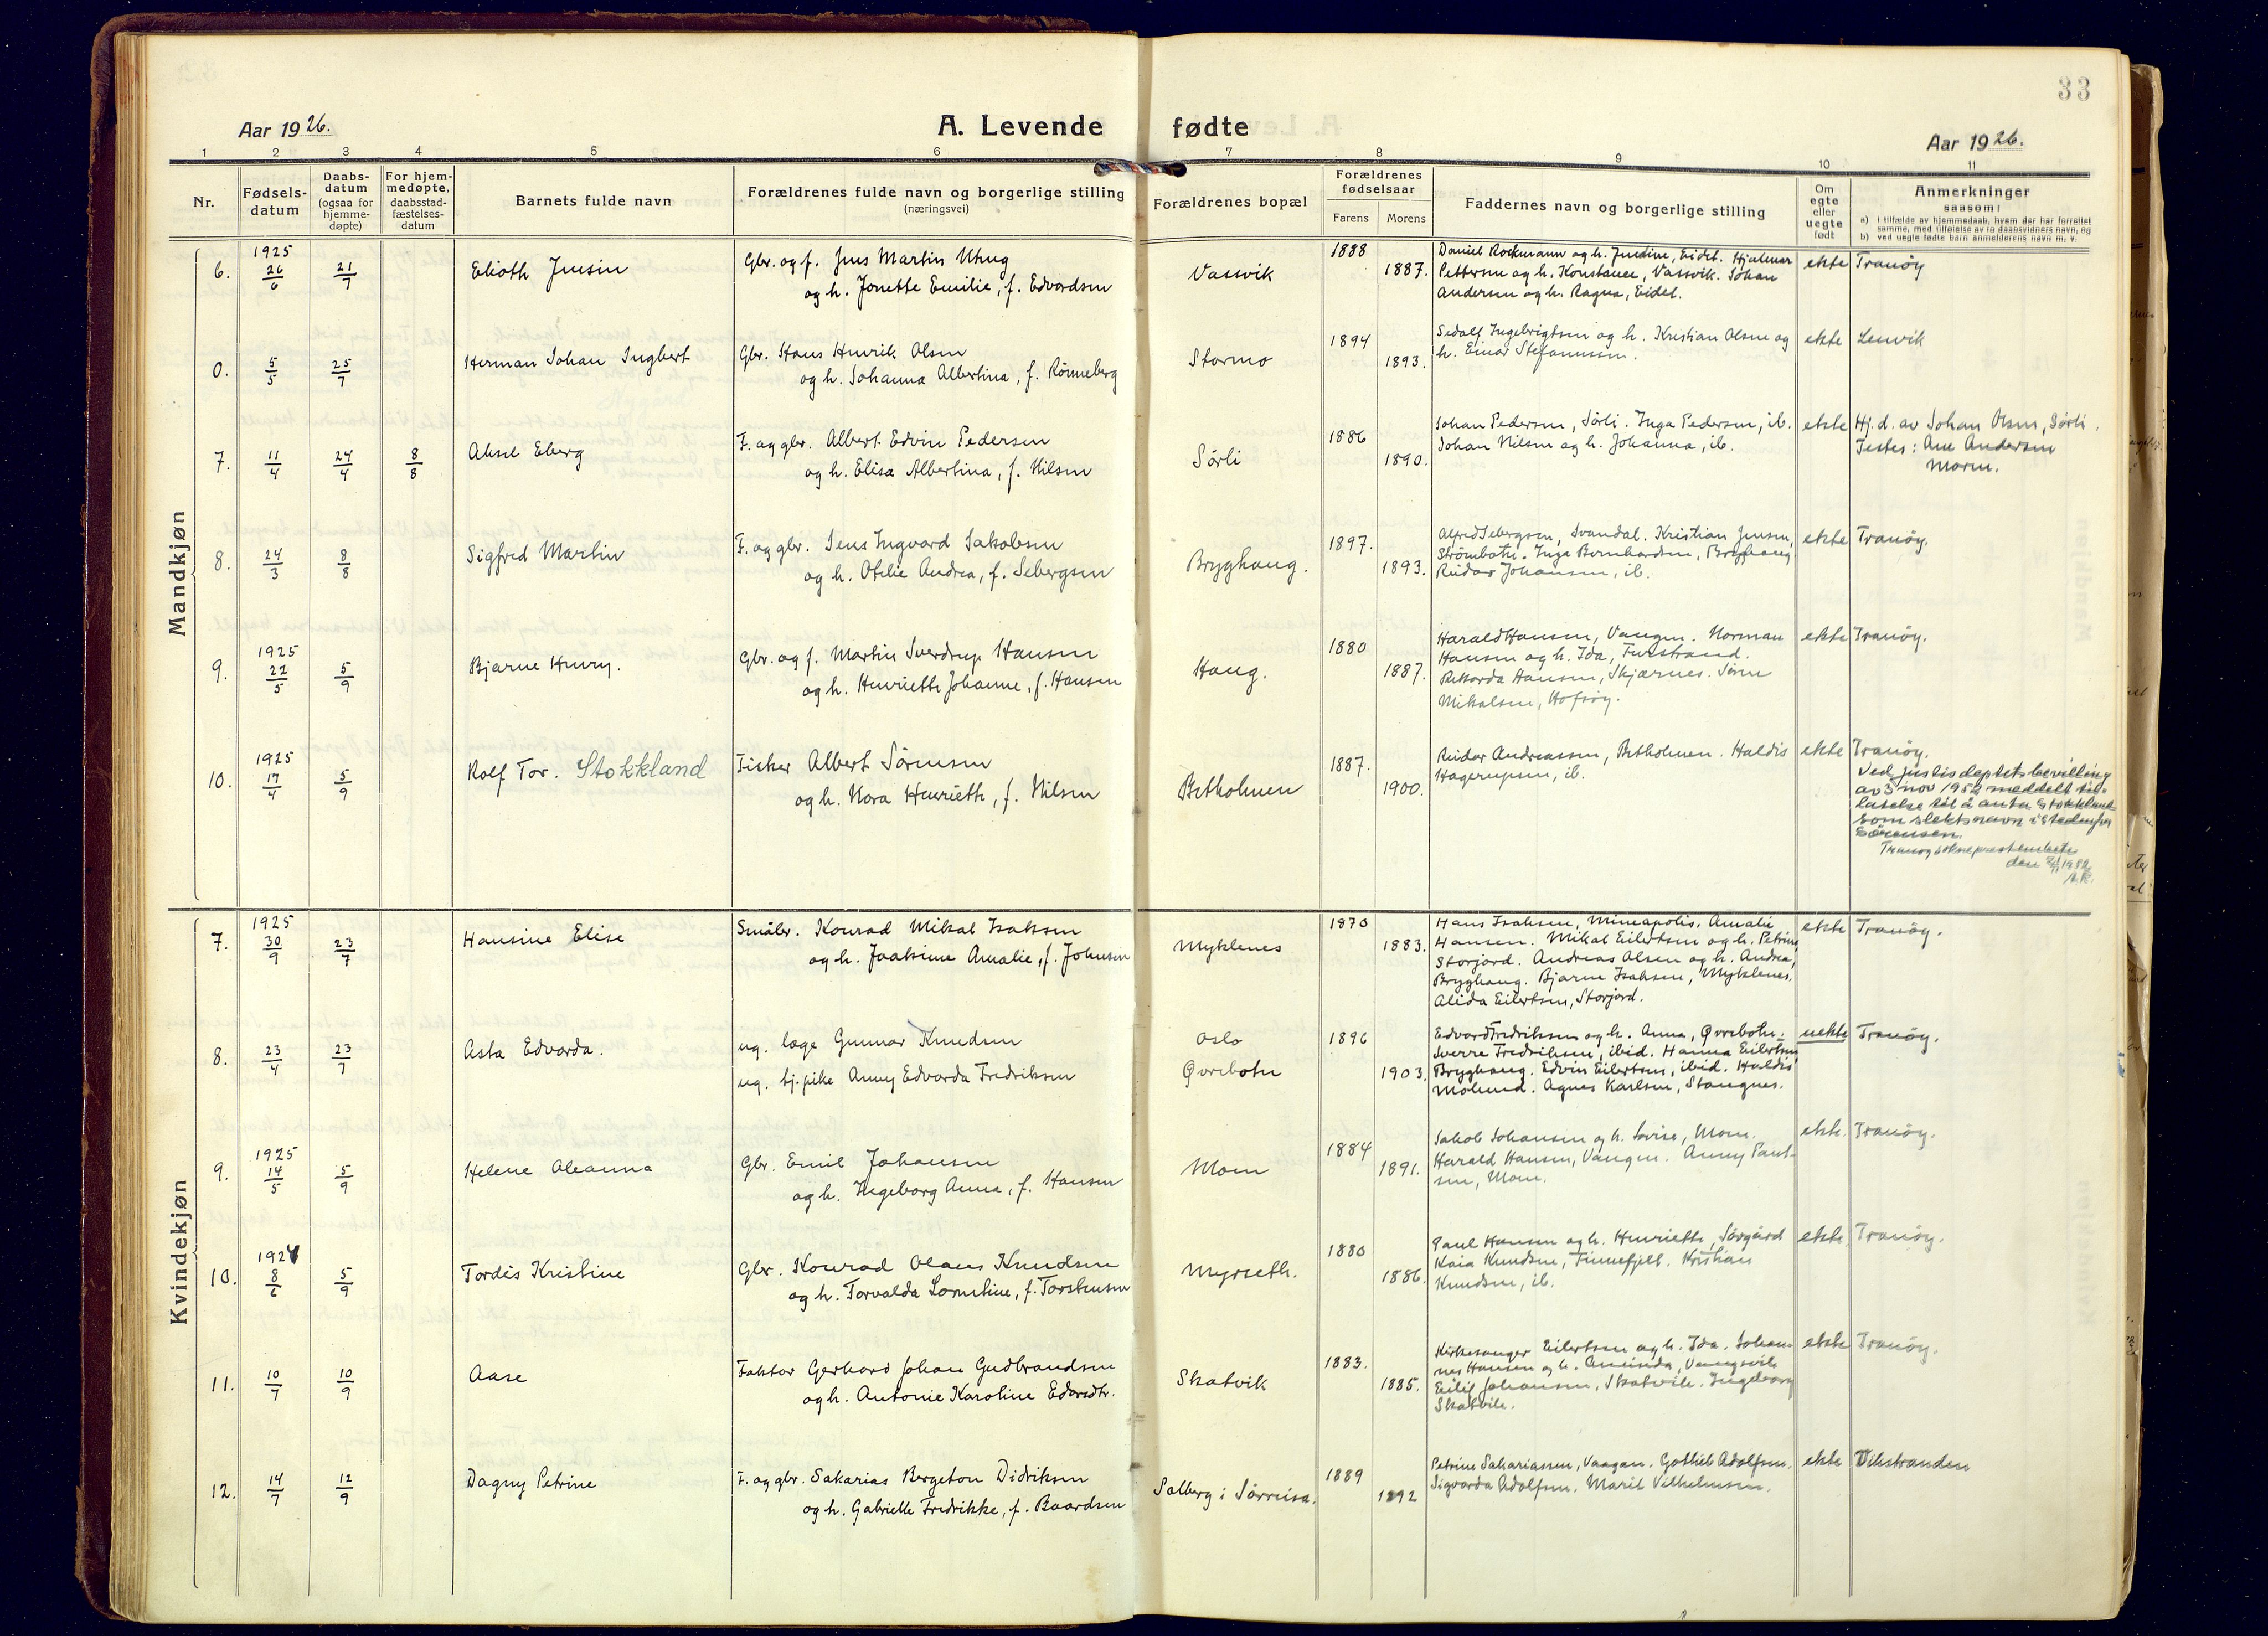 33
Aar 1926.
A. Levende fødte
Aar 1926.
1 2 3 4 5 6 7 8 9 10 11
Nr.
Fødsels-
datum
Daabs-
datum
(ogsaa for
hjemme-
døpte)
For hjem-
medøpte,
daabsstad-
fæstelses-
datum
Barnets fulde navn
Forældrenes fulde navn og borgerlige stilling
(næringsvei)
Forældrenes bopæl
Forældrenes
fødselsaar
Farens Morens
Faddernes navn og borgerlige stilling
Om
egte
eller
uegte
født
Anmerkninger
saasom:
a) i tilfælde av hjemmedaab, hvem der har forrettet
samme, med tilføielse av to daabsvidners navn, og
b) ved uegte fødte barn anmelderens navn m. v.
Mandkjøn
1925
6. 26/6 21/7
Elioth Jensin
Gbr. og f. Jens Martin Utnug
og h. Jonette Emilie, f. Edvardsen
Vassvik
1888
1887.
Daniel Rockmann og h. Jendine, Eidet. Hjalmar
Pettersen og h. Konstance, Vassvik. Johan
Andersen og h. Ragna, Eidet.
ekte
Tranöy
0. 5/5 25/7
Herman Johan Ingbert
Gbr. Hans Henrik Olsen
og h. Johanna Albertina, f. Rönneberg
Stormo
1894
1893.
Sedolf Ingebrigtsen og h. Kristian Olsen og
h. Einar Stefanussen.
ekte
Lenvik
7. 11/4 24/4 8/8
Aksel Eberg
F. og gbr. Albert Edvin Pedersen
og h. Elisa Albertina, f. Nilsen
Sørli
1886
1890.
Johan Pedersen, Sørli. Inga Pedersen, ib.
Johan Nilsen og h. Johanna, ib.
ekte
Hj. d. av Johan Olsen, Sørli.
Testes: Ane Andersen
Moren.
8. 24/3 8/8
Sigfred Martin
F. og gbr. Jens Ingvard Jakobsen
og h. Otelie Andrea, f. Sebergsen
Bryghaug.
1897.
1893.
Alfred Sebergsen, Svandal. Kristian Jensen,
Strömbotn. Inga Bernhardsen, Bryghaug
Reidar Johansen, ib.
ekte
Tranöy.
1925
9. 22/5 5/9
Bjarne Henry.
Gbr. og f. Martin Sverdrup Hansen
og h. Henriette Johanne, f. Hansen
Haug.
1880
1887.
Harald Hansen, Vangen. Norman
Hansen og h. Ida, Furstrand.
Rikarda Hansen, Skjærnes. Sören
Mikalsen, Hofsöy.
ekte
Tranöy.
1925
10. 17/4 5/9
Rolf Tor. Stokkland
Fisker Albert Sörensen
og h. Nora Henriette, f. Nilsen
Britholmen
1887.
1900.
Reidar Andreassen, Britholmen. Haldis
Hagerupsen, ib.
ekte
Tranöy.
Ved Justisdeptets bevilling
av 3 nov 1952 meddelt til-
latelse til å anta Stokkland
som slektsnavn i stedenfor
Sörensen.
Tranøy sokneprestembete
den 1952
Kvindekjøn
1925
7. 30/9 23/7
Hansine Elise
Småbr. Konrad Mikal Isaksen
og h. Joakime Amalie, f. Johnsen
Myklenes
1870
1883.
Hans Isaksen, Mineapolis. Amalie
Hansen. Mikal Eilertsen og h. Petrine,
Storjord. Andreas Olsen og h. Andrea,
Bryghaug. Bjarne Isaksen, Myklenes.
Alida Eilertsen, Storjord.
ekte
Tranöy.
8. 23/4 23/7
Asta Edvarda.
ug. læge Gunnar Knudsen
ug. tj.pike Anny Edvarda Fredriksen
Oslo
Øvrebotn
1896
1903.
Edvard Fredriksen og h. Anna, Øvrebotn.
Sverre Fredriksen, ibid. Hanna Eilertsen,
Bryghaug. Edvin Eilertsen, ibid. Haldis
Molund. Agnes Karlsen, Stangnes.
uekte
Tranöy.
1925
9. 14/5 5/9
Helene Oleanna
Gbr. Emil Johansen
og h. Ingeborg Anna, f. Hansen
Moen
1884
1891.
Jakob Johansen og h. Lovise, Moen.
Harald Hansen, Vangen. Anny Paul-
sen, Moen.
ekte.
Tranöy.
1924
10. 8/6 5/9
Tordis Kristine
Gbr. Konrad Olaus Knudsen
og h. Torvalda Lorentine, f. Torstensen
Myrseth.
1880
1886.
Paul Hansen og h. Henriette, Sörgård
Kaia Knudsen, Finnefjell. Kristian
Knudsen, ib.
ekte
Tranöy.
11. 10/7 10/9
Aase
Faktor Gerhard Johan Gudbrandsen
og h. Antonie Karoline Edvardtr.
Skatvik
1883.
1885.
Kirkesanger Eilertsen og h. Ida. Johan-
nes Hansen og h. Amanda, Vangsvik
Eilif Johansen, Skatvik. Ingeborg
Skatvik.
ekte
Tranöy.
12. 14/7 12/9
Dagny Petrine
F. og gbr. Sakarias Bergeton Didriksen
og h. Gabrielle Fredrikke, f. Baardsen
Solberg i Sørreisa.
1889
1892
Petrine Sakariassen, Vaagan. Gotlieb Adolfsen.
Sigvarda Adolfsen. Marit Vilhelmsen.
ekte
Vikstranden